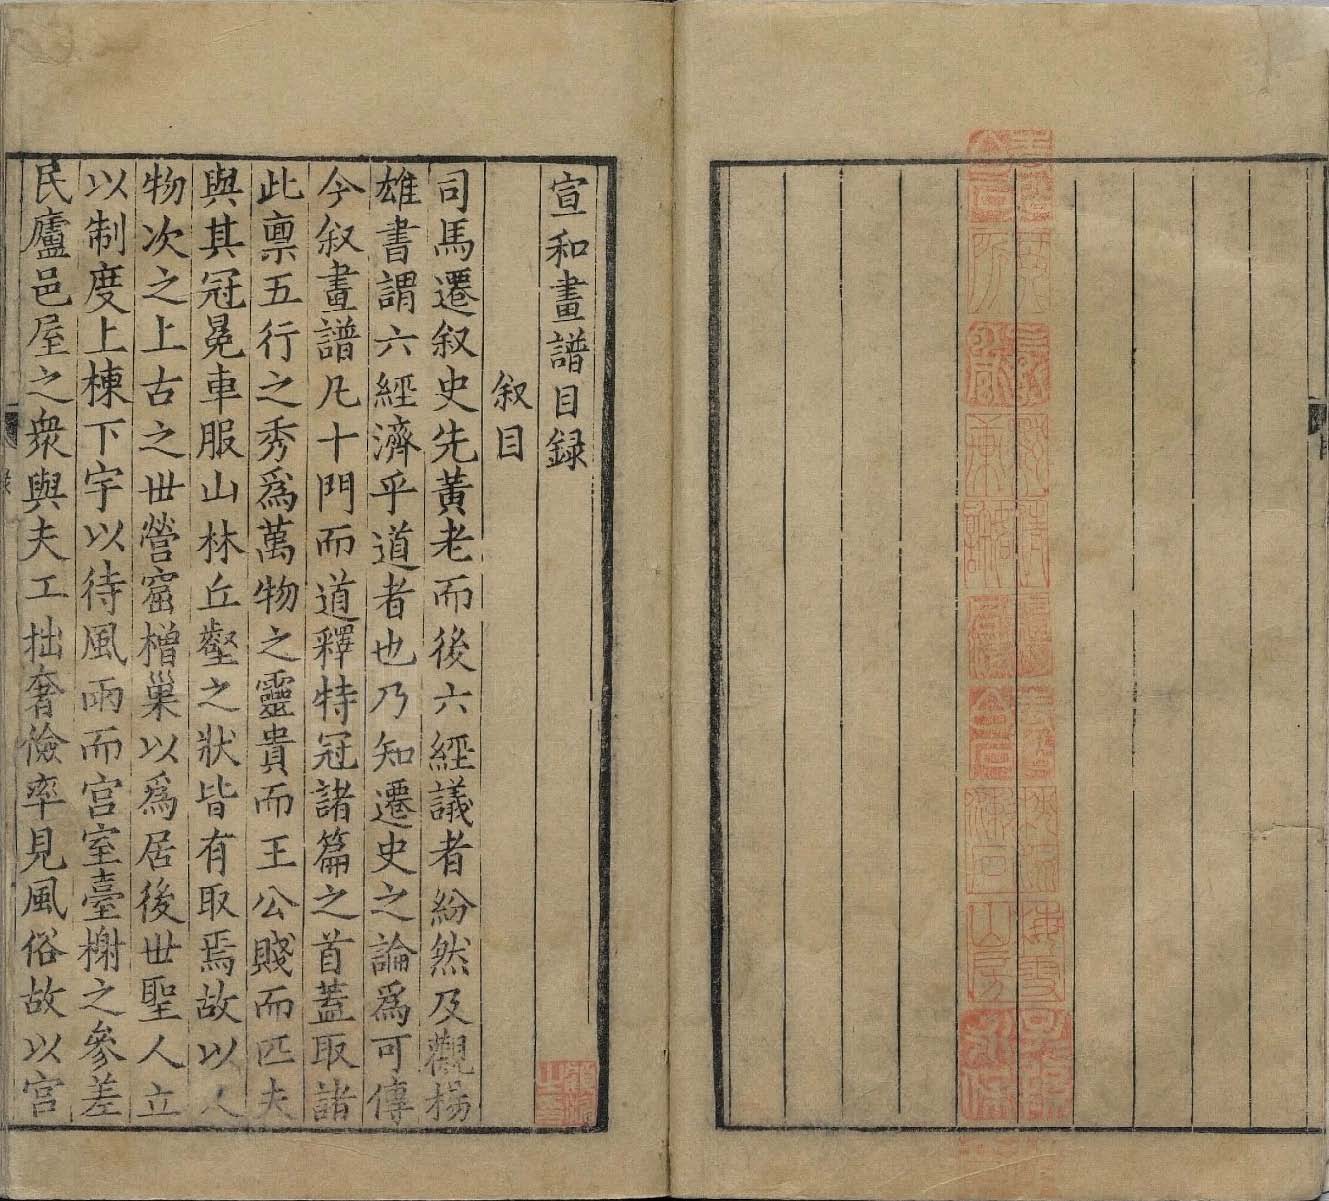 宣和畫譜目録
叙目
司馬遷叙史先黄老而後六經議者紛然及觀楊
雄書謂六經濟乎道者也乃知遷史之論爲可傳
今叙畫譜凡十門而道釋特冠諸篇之首蓋取諸
此禀五行之秀爲萬物之靈貴而王公賤而匹夫
與其冠冕車服山林丘壑之狀皆有取焉故以人
物次之上古之世營窟橧巢以爲居後世聖人立
以制度上棟下宇以待風雨而宫室臺榭之參差
民廬邑屋之衆與夫工拙奢儉率見風俗故以宫